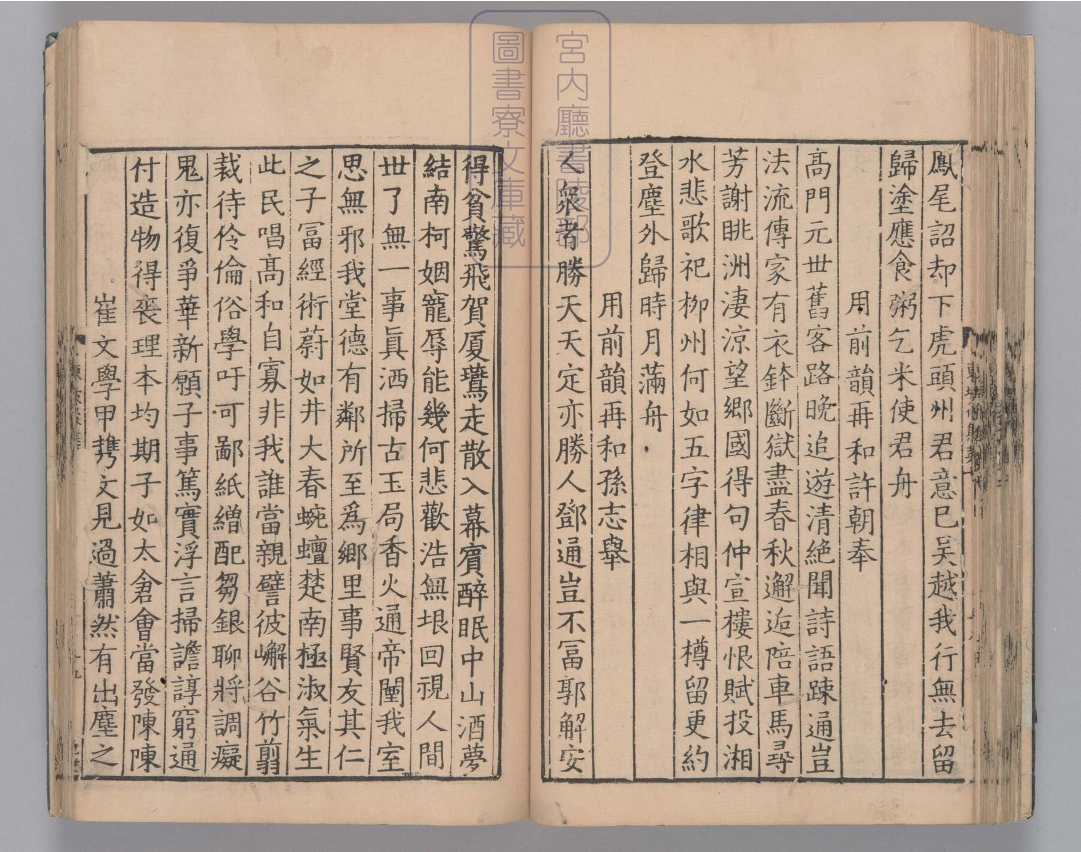 鳳尾詔却下虎頭州君意已吳越我行無去留
歸塗應食粥乞米使君舟
用前韻再和許朝奉
高門元世舊客路晚追遊清絕聞詩語踈通豈
法流傳家有衣鉢斷獄盡春秋邂逅陪車馬尋
芳謝眺洲淒涼望鄉國得句仲宣樓恨賦投湘
水悲歌祀柳州何如五字律相與一樽留更約
登塵外歸時月滿舟
用前韻再和孫志舉
人衆者勝天天定亦勝人鄧通豈不冨郭解安
得貧驚飛賀厦鷰走散入幕賓醉眠中山酒夢
結南柯姻寵辱能幾何悲歡浩無垠回視人間
世了無一事眞洒掃古玉局香火通帝闉我室
思無邪我堂德有鄰所至爲鄉里事賢友其仁
之子冨經術蔚如井大春蜿蟺楚南極淑氣生
此民唱髙和自寡非我誰當親譬彼嶰谷竹剪
裁待伶倫俗學吁可鄙紙繒配芻銀聊將調癡
鬼亦復爭華新願子事篤實浮言掃譫諄窮通
付造物得喪理本均期子如太倉會當發陳陳
崔文學甲擕文見過蕭然有出塵之
宮內廳書陵部
圖書寮文庫藏